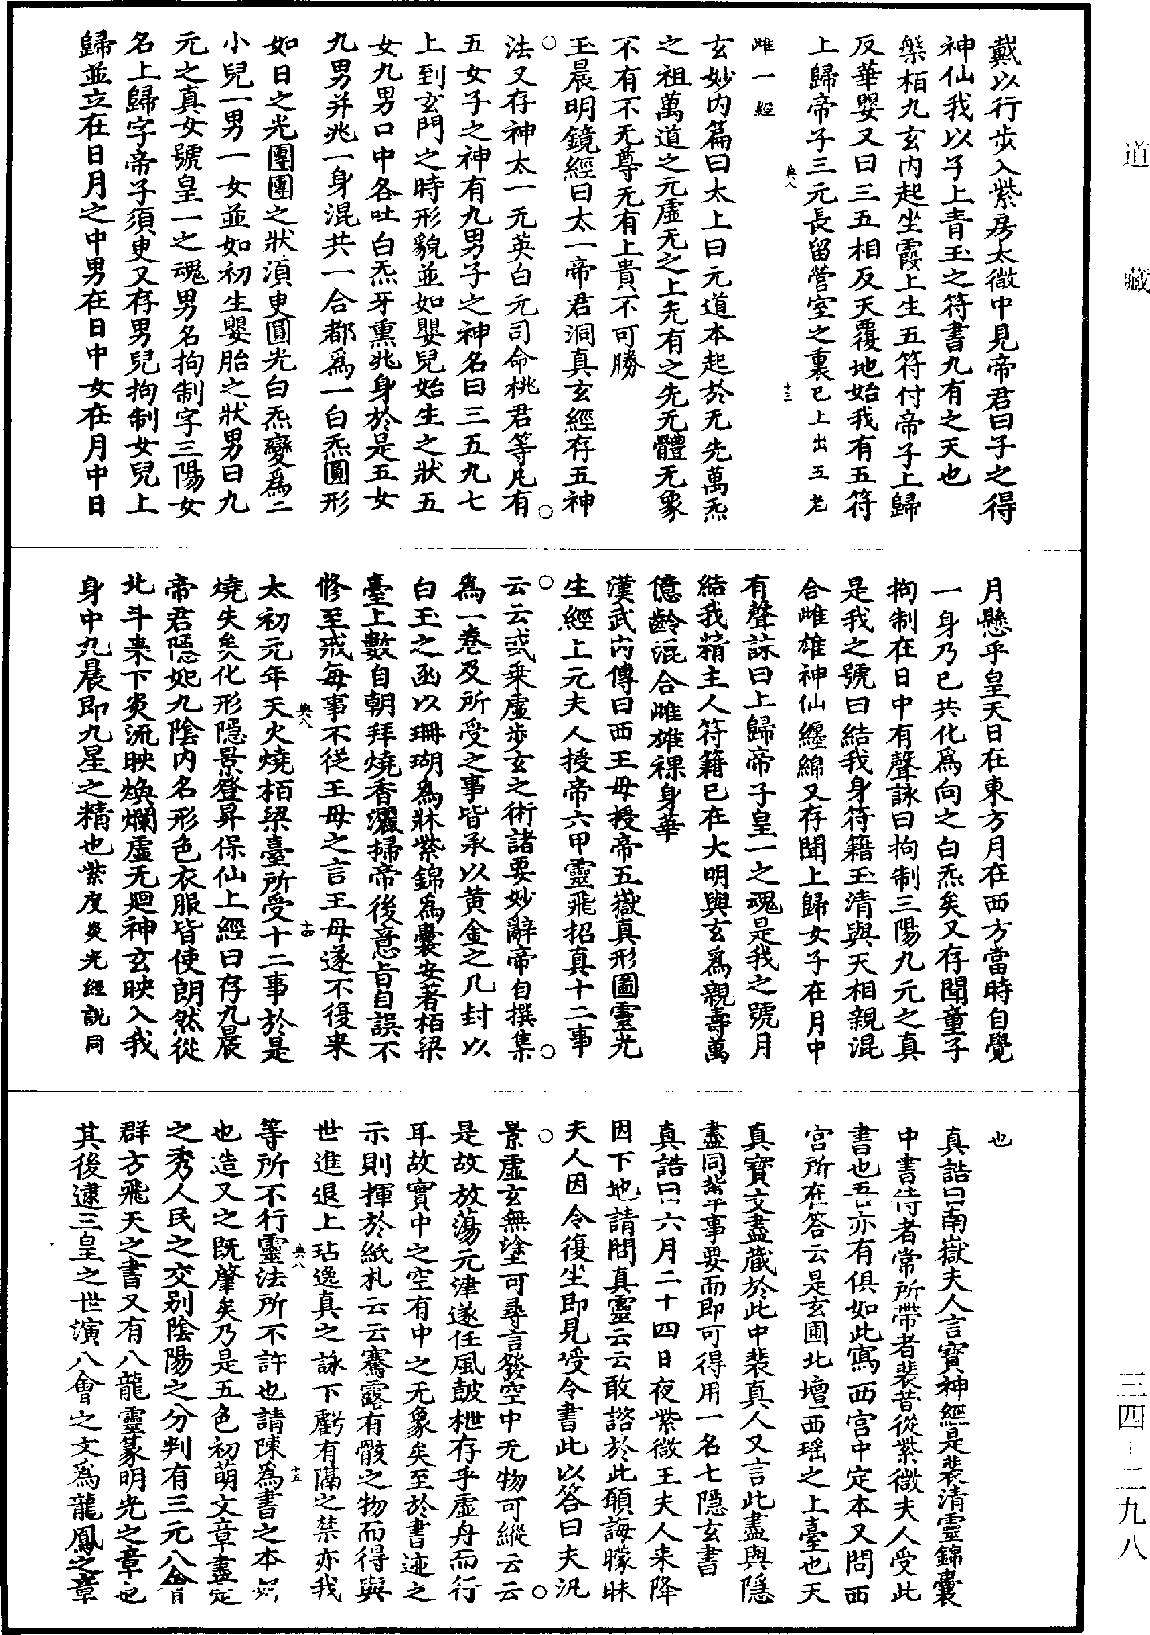 道藏
三四—二九八
戴以行步入紫房太微中見帝君曰子之得
神仙我以子上青玉之符書九有之天也
槃栢九玄内起坐霞上生五符付帝子上歸
反華嬰又曰三五相反天覆地始我有五符
上歸帝子三元長留營室之裏已上出五老
典八
十三
雌一經
玄妙内篇曰太上曰元道本起於无先萬炁
之祖萬道之元虛无之上无有之先无體无象
不有不无尊无有上貴不可勝
玉晨明鏡經曰太一帝君洞真玄經存五神
法又存神太一无英白元司命桃君等凡有
五女子之神有九男子之神名曰三五九七
上到玄門之時形貌並如嬰兒始生之狀五
女九男口中各吐白炁牙熏兆身於是五女
九男并兆一身混共一合都爲一白炁圓形
如日之光團團之狀湏臾圓光白炁變爲二
小兒一男一女並如初生嬰胎之狀男曰九
元之真女號皇一之魂男名拘制字三陽女
名上歸字帝子須臾又存男兒拘制女兒上
歸並立在日月之中男在日中女在月中日
月懸乎皇天日在東方月在西方當時自覺
一身乃已共化爲向之白炁矣又存聞童子
拘制在日中有聲詠曰拘制三陽九元之真
是我之號曰結我身符籍玉清與天相親混
合雌雄神仙纏綿又存聞上歸女子在月中
有聲詠曰上歸帝子皇一之魂是我之號月
結我精主人符籍已在大明與玄爲親壽萬
億齡混合雌雄裸身華
漢武内傳曰西王母授帝五嶽真形圖靈光
生經上元夫人授帝六甲靈飛招真十二事
云云或乘虛步玄之術諸要妙辭帝自撰集
爲一卷及所受之事皆承以黄金之几封以
白玉之函以珊瑚爲牀紫錦爲囊安著栢梁
臺上數自朝拜燒香灑掃帝後意旨自誤不
修至戒每事不從王母之言王母遂不復来
典八
十四
太初元年天火燒栢梁臺所受十二事於是
燒失矣化形隱景登昇保仙上經曰存九晨
帝君隱妃九陰内名形色衣服皆使朗然從
北斗来下炎流映煥爛虛无廻神玄映入我
身中九晨即九星之精也紫度炎光經說同
也
真誥曰南嶽夫人言寶神經是裴清靈錦囊
中書侍者常所帶者裴昔從紫微夫人受此
書也吾亦有俱如此寫西宮中定本又問西
宮所在答云是玄圃北壇西瑶之上臺也天
真寶文盡藏於此中裴真人又言此盡與隱
盡同芻乎事要而即可得用一名七隱玄書
真誥曰六月二十四日夜紫微王夫人来降
因下地請問真靈云云敢諮於此願誨矇昧
夫人因令復坐即見受令書此以答曰夫汎
景虛玄無塗可尋言發空中无物可縱云云
是故放蕩元津遂任風鼓枻存乎虛舟而行
耳故實中之空有中之无象矣至於書迹之
示則揮於紙札云云騫露有骸之物而得與
世進退上玷逸真之詠下虧有隔之禁亦我
典八
十五
等所不行靈法所不許也請陳為書之本始
也造文之既肇矣乃是五色初萌文章畫定
之秀人民之交别陰陽之分判有三元八會
群方飛天之書又有八龍靈篆明光之章也
其後逮三皇之世演八會之文為龍鳳之章